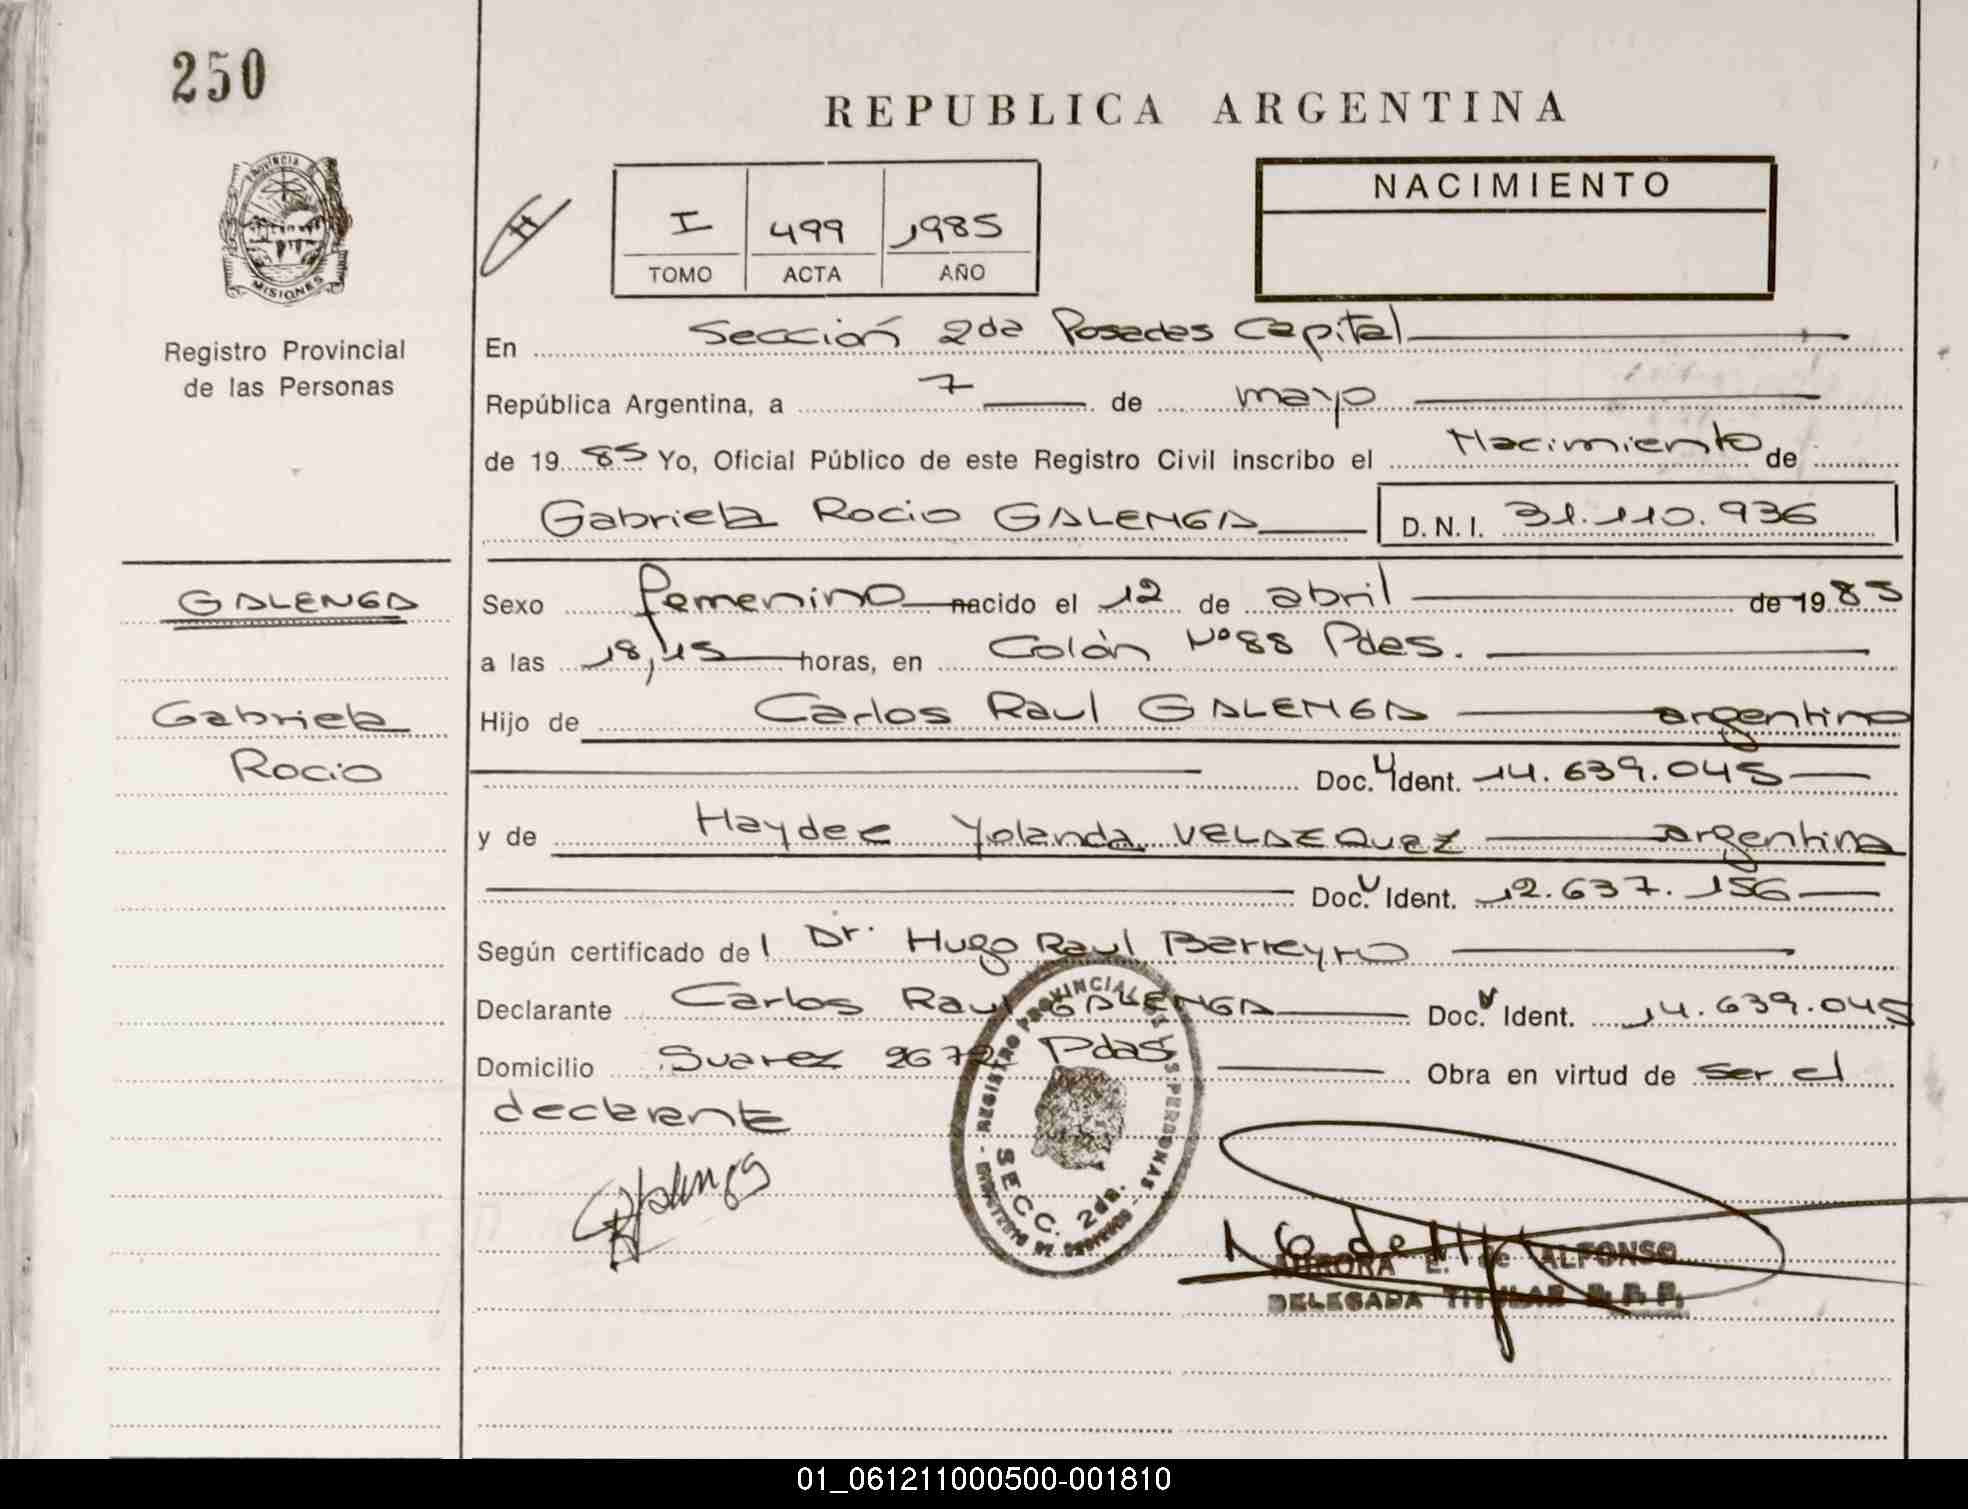 250
REPUBLICA ARGENTINA
PROVINCIA
MISIONES
Registro Provincial
de las Personas
I 499 1985
TOMO ACTA AÑO
NACIMIENTO
En Sección 2da Posadas Capital
República Argentina, a 7 de mayo
de 1985 Yo, Oficial Público de este Registro Civil inscribo el Nacimiento de
Gabriela Rocio GALENGA D.N.I. 31.110.936
GALENGA
Gabriela
Rocio
Sexo femenino nacido el 12 de abril de 1985
a las 18,15 horas, en Colón Nº 88 Pdas.
Hijo de Carlos Raul GALENGA argentino
Doc. Ident. 14.639.045
y de Haydee Yolanda VELAZQUEZ argentina
Doc. Ident. 12.637.156
Según certificado del Dr. Hugo Raul Barreyro
Declarante Carlos Raul GALENGA Doc. Ident. 14.639.045
Domicilio Suarez 2672 Pdas Obra en virtud de ser el
declarante
REGISTRO PROVINCIAL DE LAS PERSONAS
SECC. 2da.
AURORA E. de ALFONSO
DELEGADA TITULAR R. P. P.
01_061211000500-001810